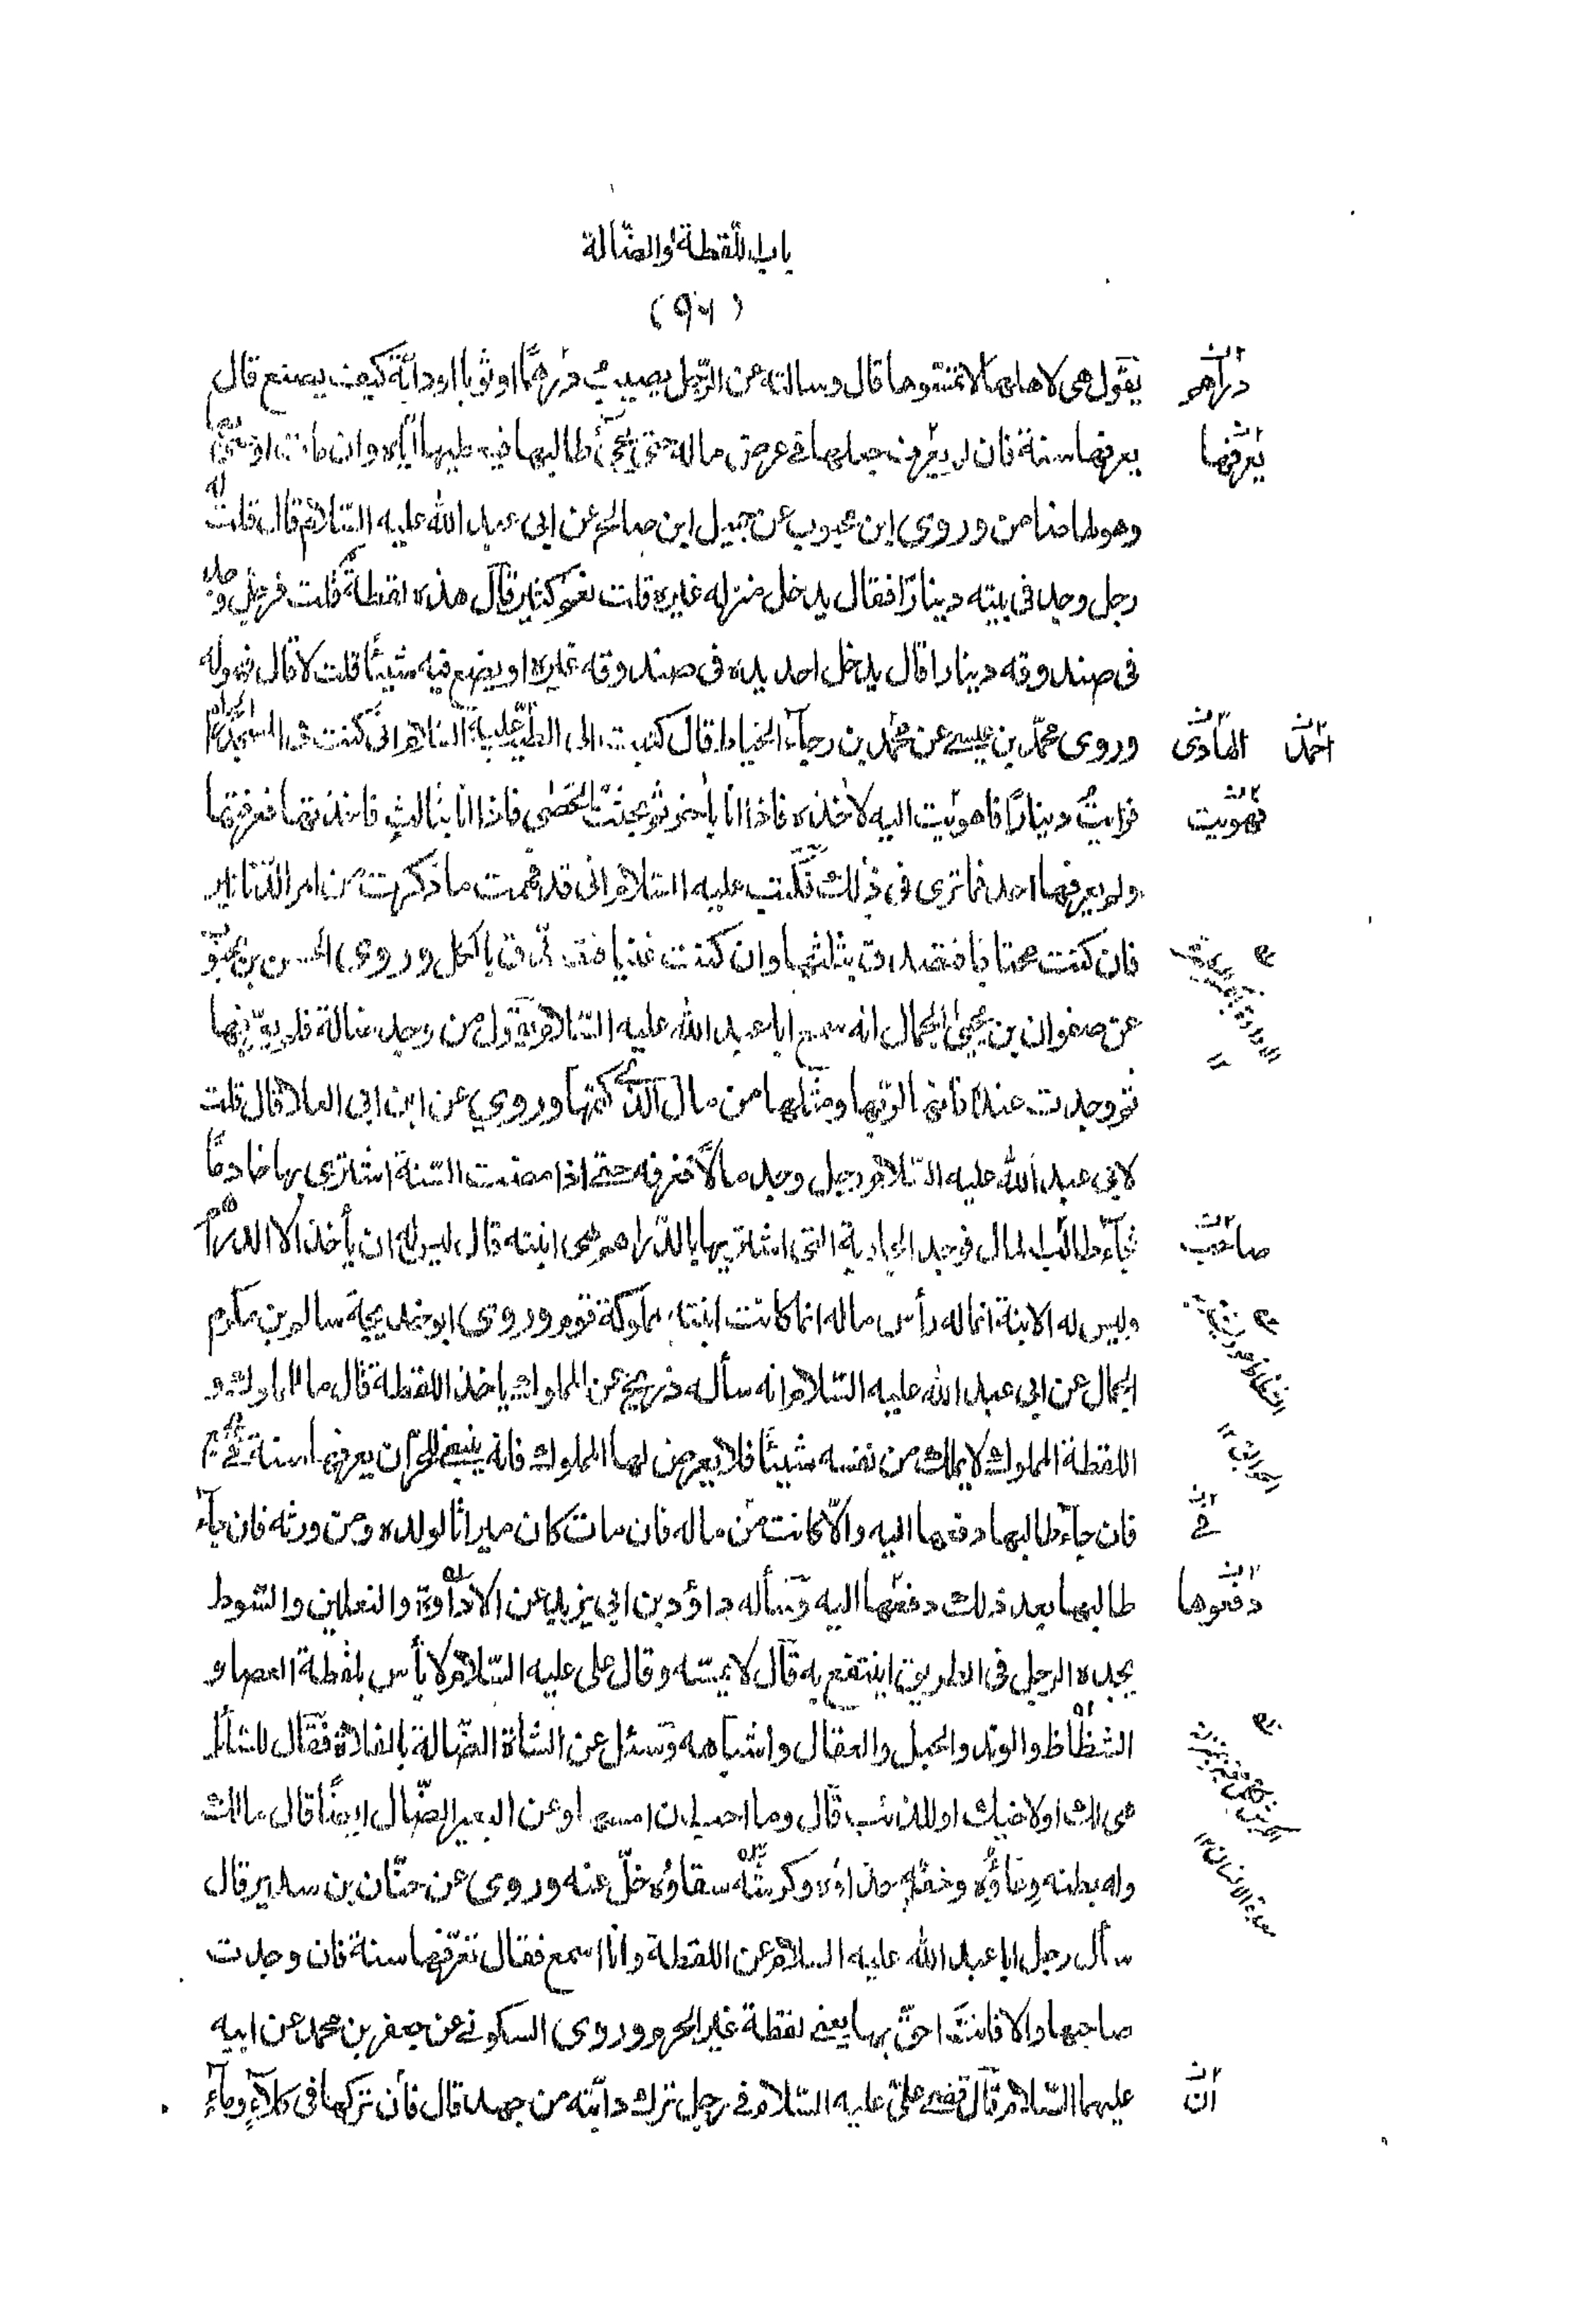 باب اللقطة والضّالة
(٩٦)
يقول هى لاهلها لا تمسّوها قال وسالته عن الرّجل يصيب درهمًا او ثوبا او دابّة كيف يصنع قال
يعرفها سنة فان لم يعرف جعلها فى عرض ماله حتى يجئ طالبها فيعطيها ايّاه وان مات اوصى
وهو لها ضامن وروى ابن محبوب عن جميل ابن صالح عن ابى عبد الله عليه السّلام قال قلت له
رجل وجد فى بيته دينارًا فقال يدخل منزله غيره قلت نعم كثير قال هذه لقطة قلت فرجل وجد
فى صندوقه دينارا قال يدخل احد يده فى صندوقه غيره او يضع فيه شيئًا قلت لا قال فهو له
وروى محمّد بن عيسى عن محمّد بن رجآء الخياط قال كتبت الى الطّيّب انى كنت فى المسجد الحرام
فرايت دينارًا فاهويت اليه لاخذه فاذا انا بآخر ثم بحثت الحصى فاذا انا بثالث فاخذتها فعرفتها
ولم يعرفها احد فما ترى فى ذلك فكتب عليه السّلام انى قد فهمت ما ذكرت من امر الدّنانير
فان كنت محتاجا فتصدق بثلثها وان كنت غنيا فتصدّق بالكل وروى الحسن بن محبوب
عن صفوان بن يحيى الجمال انه سمع ابا عبد الله عليه السّلام يقول من وجد ضالة فلم يعرّفها
ثم وجدت عنده فانها لربّها ومثلها من مال الذى كتمها وروى عن ابن ابى العلا قال قلت
لابى عبد الله عليه السّلام رجل وجد مالًا فعرفه حتى اذا مضت السّنة اشترى بها خادمًا
فجآء طالب المال فوجد الجارية التى اشتريها بالدّراهم هى ابنته قال ليس له ان يأخذ الا الدراهم
وليس له الابنة انما له رأس ماله انما كانت ابنته مملوكة قوم وروى ابو خديجة سالم بن مكرم
الجمال عن ابى عبد الله عليه السّلام انه سأله ذريح عن المملوك ياخذ اللقطة قال ما للمملوك و
اللقطة المملوك لا يملك من نفسه شيئًا فلا يعرض لها المملوك فانه ينبغى للحرّ ان يعرفها سنة فى مجمع
فان جآء طالبها دفعها اليه والّا كانت من ماله فان مات كان ميراثا لولده ومن ورثه فان جآء
طالبها بعد ذلك دفعها اليه وسأله داؤد بن ابى يزيد عن الاداوة والنعلين والسّوط
يجده الرجل فى الطريق اينتفع به قال لا يمسّه وقال على عليه السّلام لا بأس بلقطة العصا و
الشظاظ والوتد والحبل والعقال واشباهه وسئل عن الشاة الضّالة بالفلاة فقال للسّائل
هى لك او لاخيك او للذئب قال وما احب ان امسها وعن البعير الضّال ايضًا قال مالك
وله بطنه وعاؤه وخفّه حذاؤه وكرشه سقاؤه خلّ عنه وروى عن حنّان بن سدير قال
سأل رجل ابا عبد الله عليه السلام عن اللقطة وانا اسمع فقال تعرّفها سنة فان وجدت
صاحبها والا فانت احقّ بها يعنى لقطة غير الحرم وروى السكونى عن جعفر بن محمد عن ابيه
عليهما السّلام قال قضى علىّ عليه السّلام فى رجل ترك دابّته من جهد قال فان تركها فى كلآءٍ ومآءٍ
دراهم
يعرفها
الهادى
احمد
فهويت
صاحب
فى
دفعوها
ان